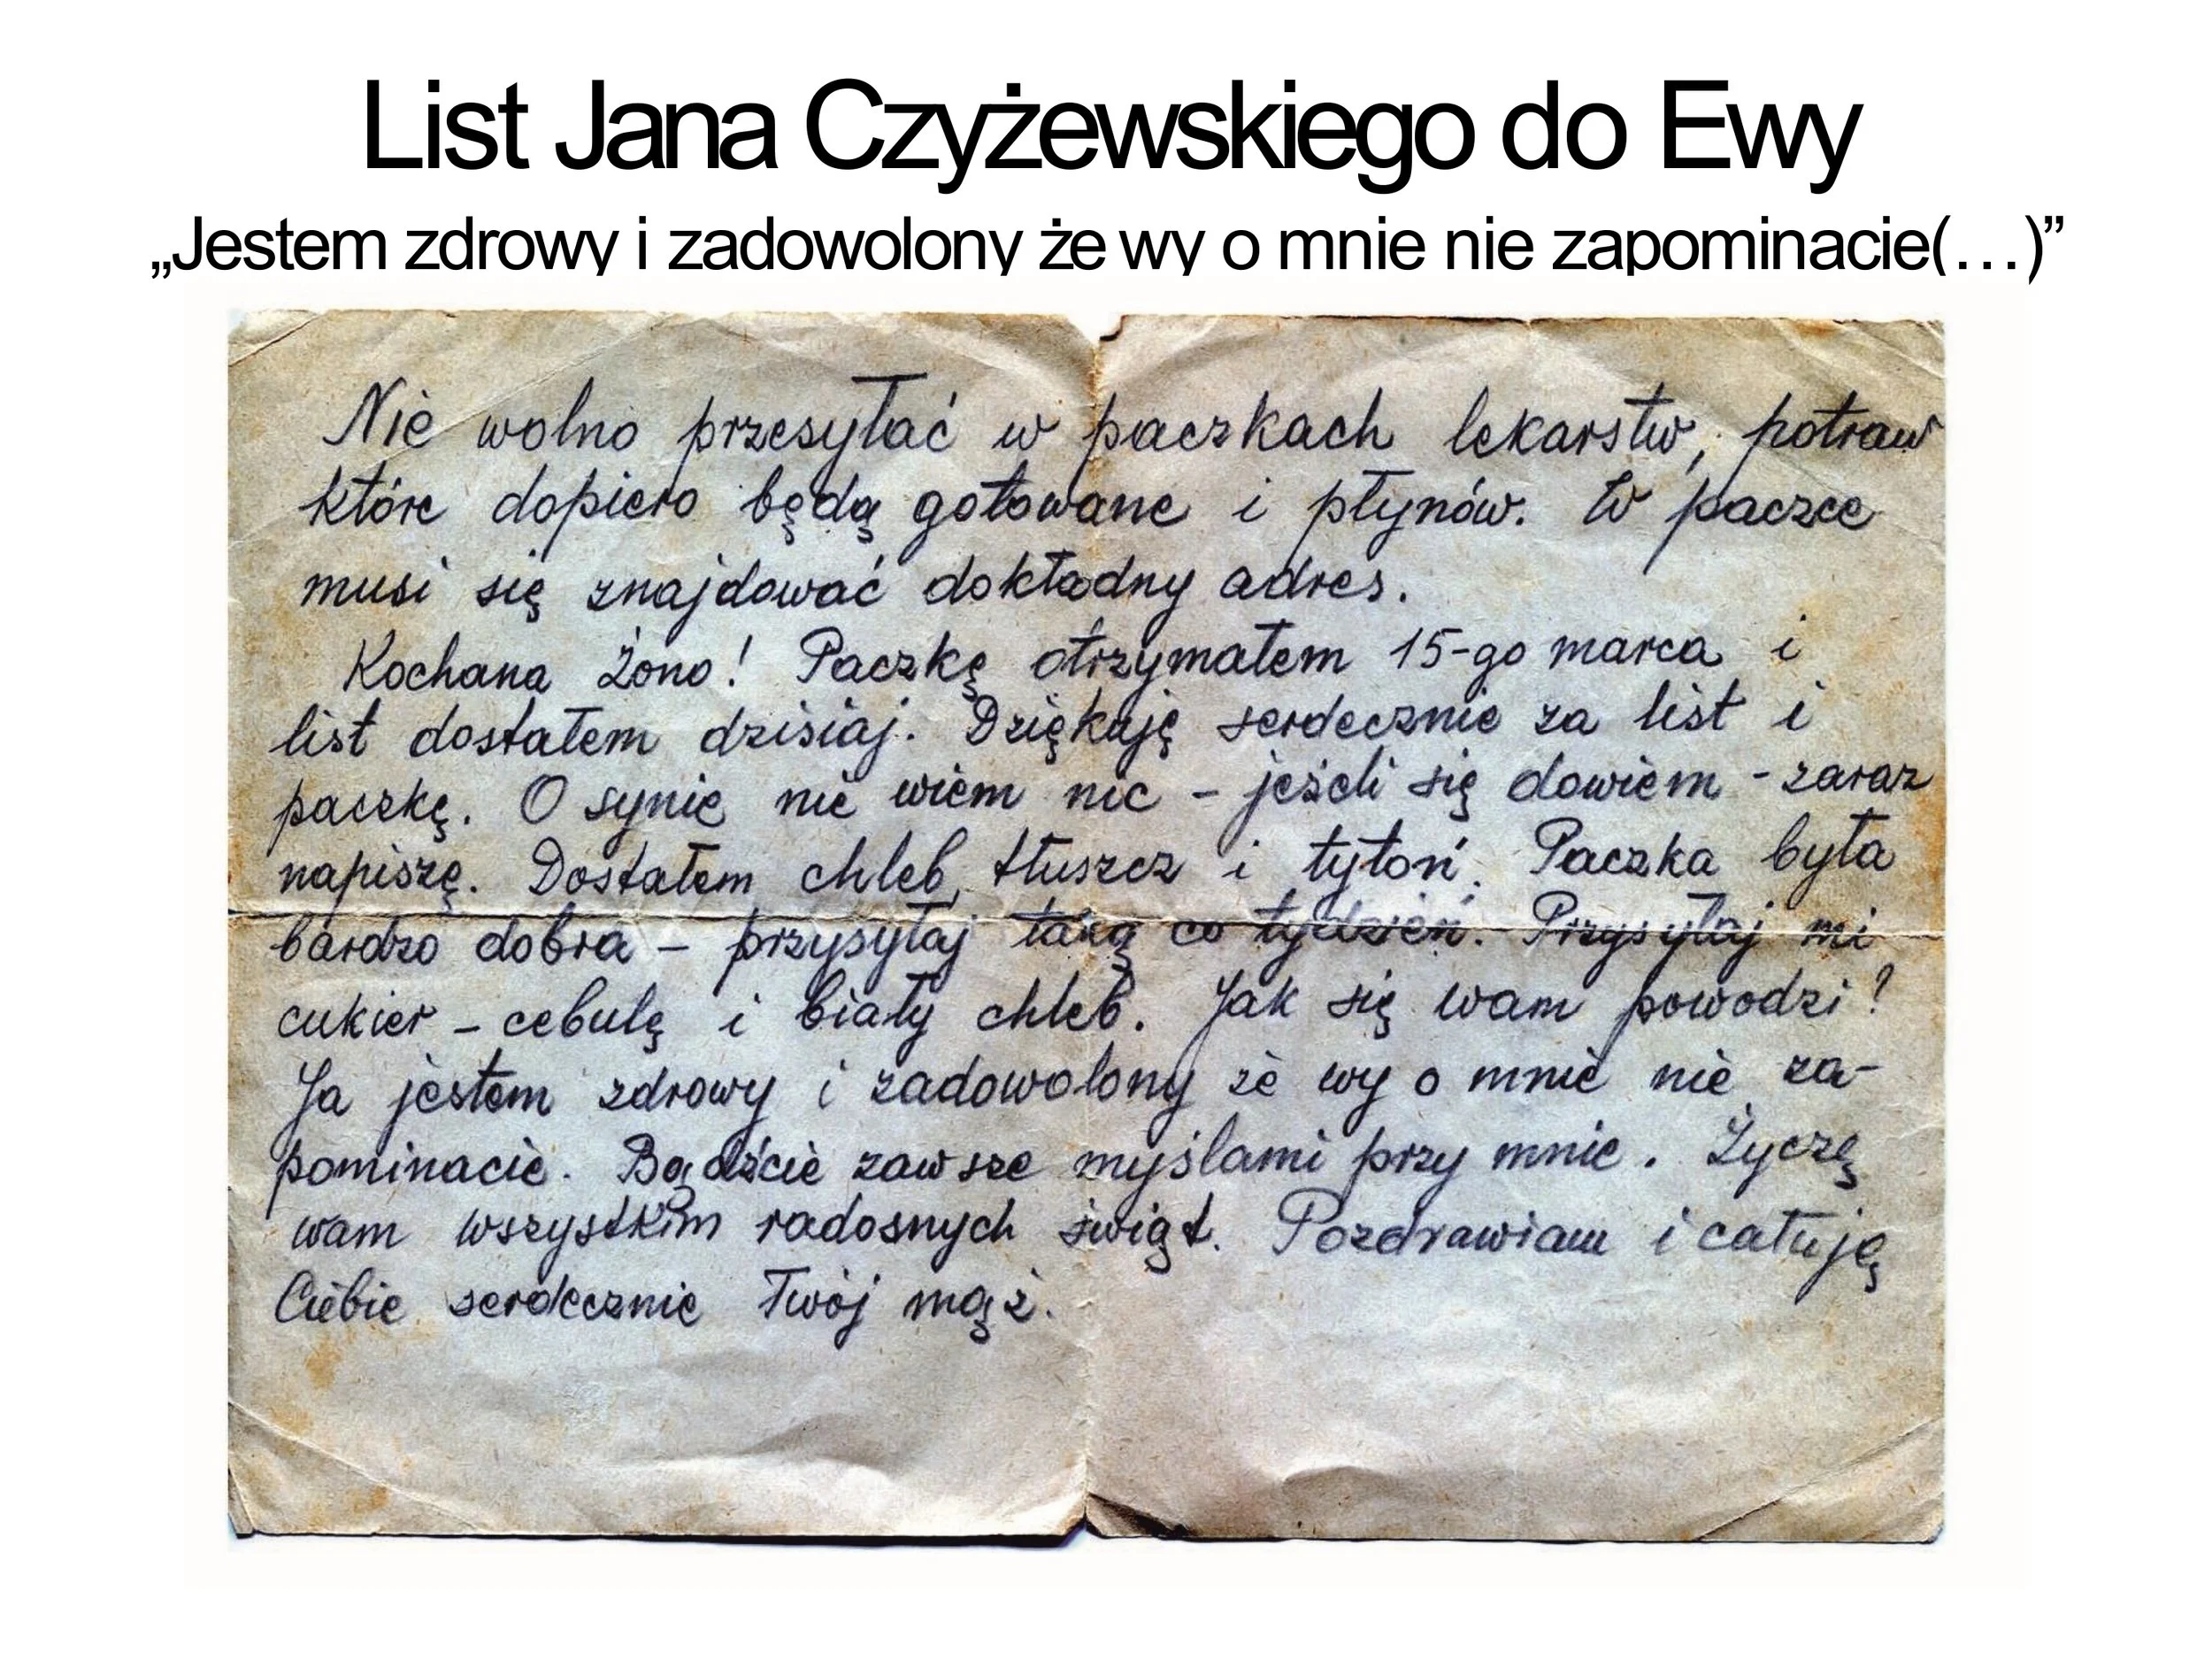 List Jana Czyżewskiego do Ewy
„Jestem zdrowy i zadowolony że wy o mnie nie zapominacie(…)”
Nie wolno przesyłać w paczkach lekarstw, potraw
które dopiero będą gotowane i płynów. W paczce
musi się znajdować dokładny adres.
Kochana Żono! Paczkę otrzymałem 15-go marca i
list dostałem dzisiaj. Dziękuję serdecznie za list i
paczkę. O synie nie wiem nic - jeżeli się dowiem - zaraz
napiszę. Dostałem chleb, tłuszcz i tytoń. Paczka była
bardzo dobra - przysyłaj taką co tydzień. Przysyłaj mi
cukier - cebulę i biały chleb. Jak się wam powodzi?
Ja jestem zdrowy i zadowolony że wy o mnie nie za-
pominacie. Bądźcie zawsze myślami przy mnie. Życzę
wam wszystkim radosnych świąt. Pozdrawiam i całuję
Ciebie serdecznie Twój mąż.